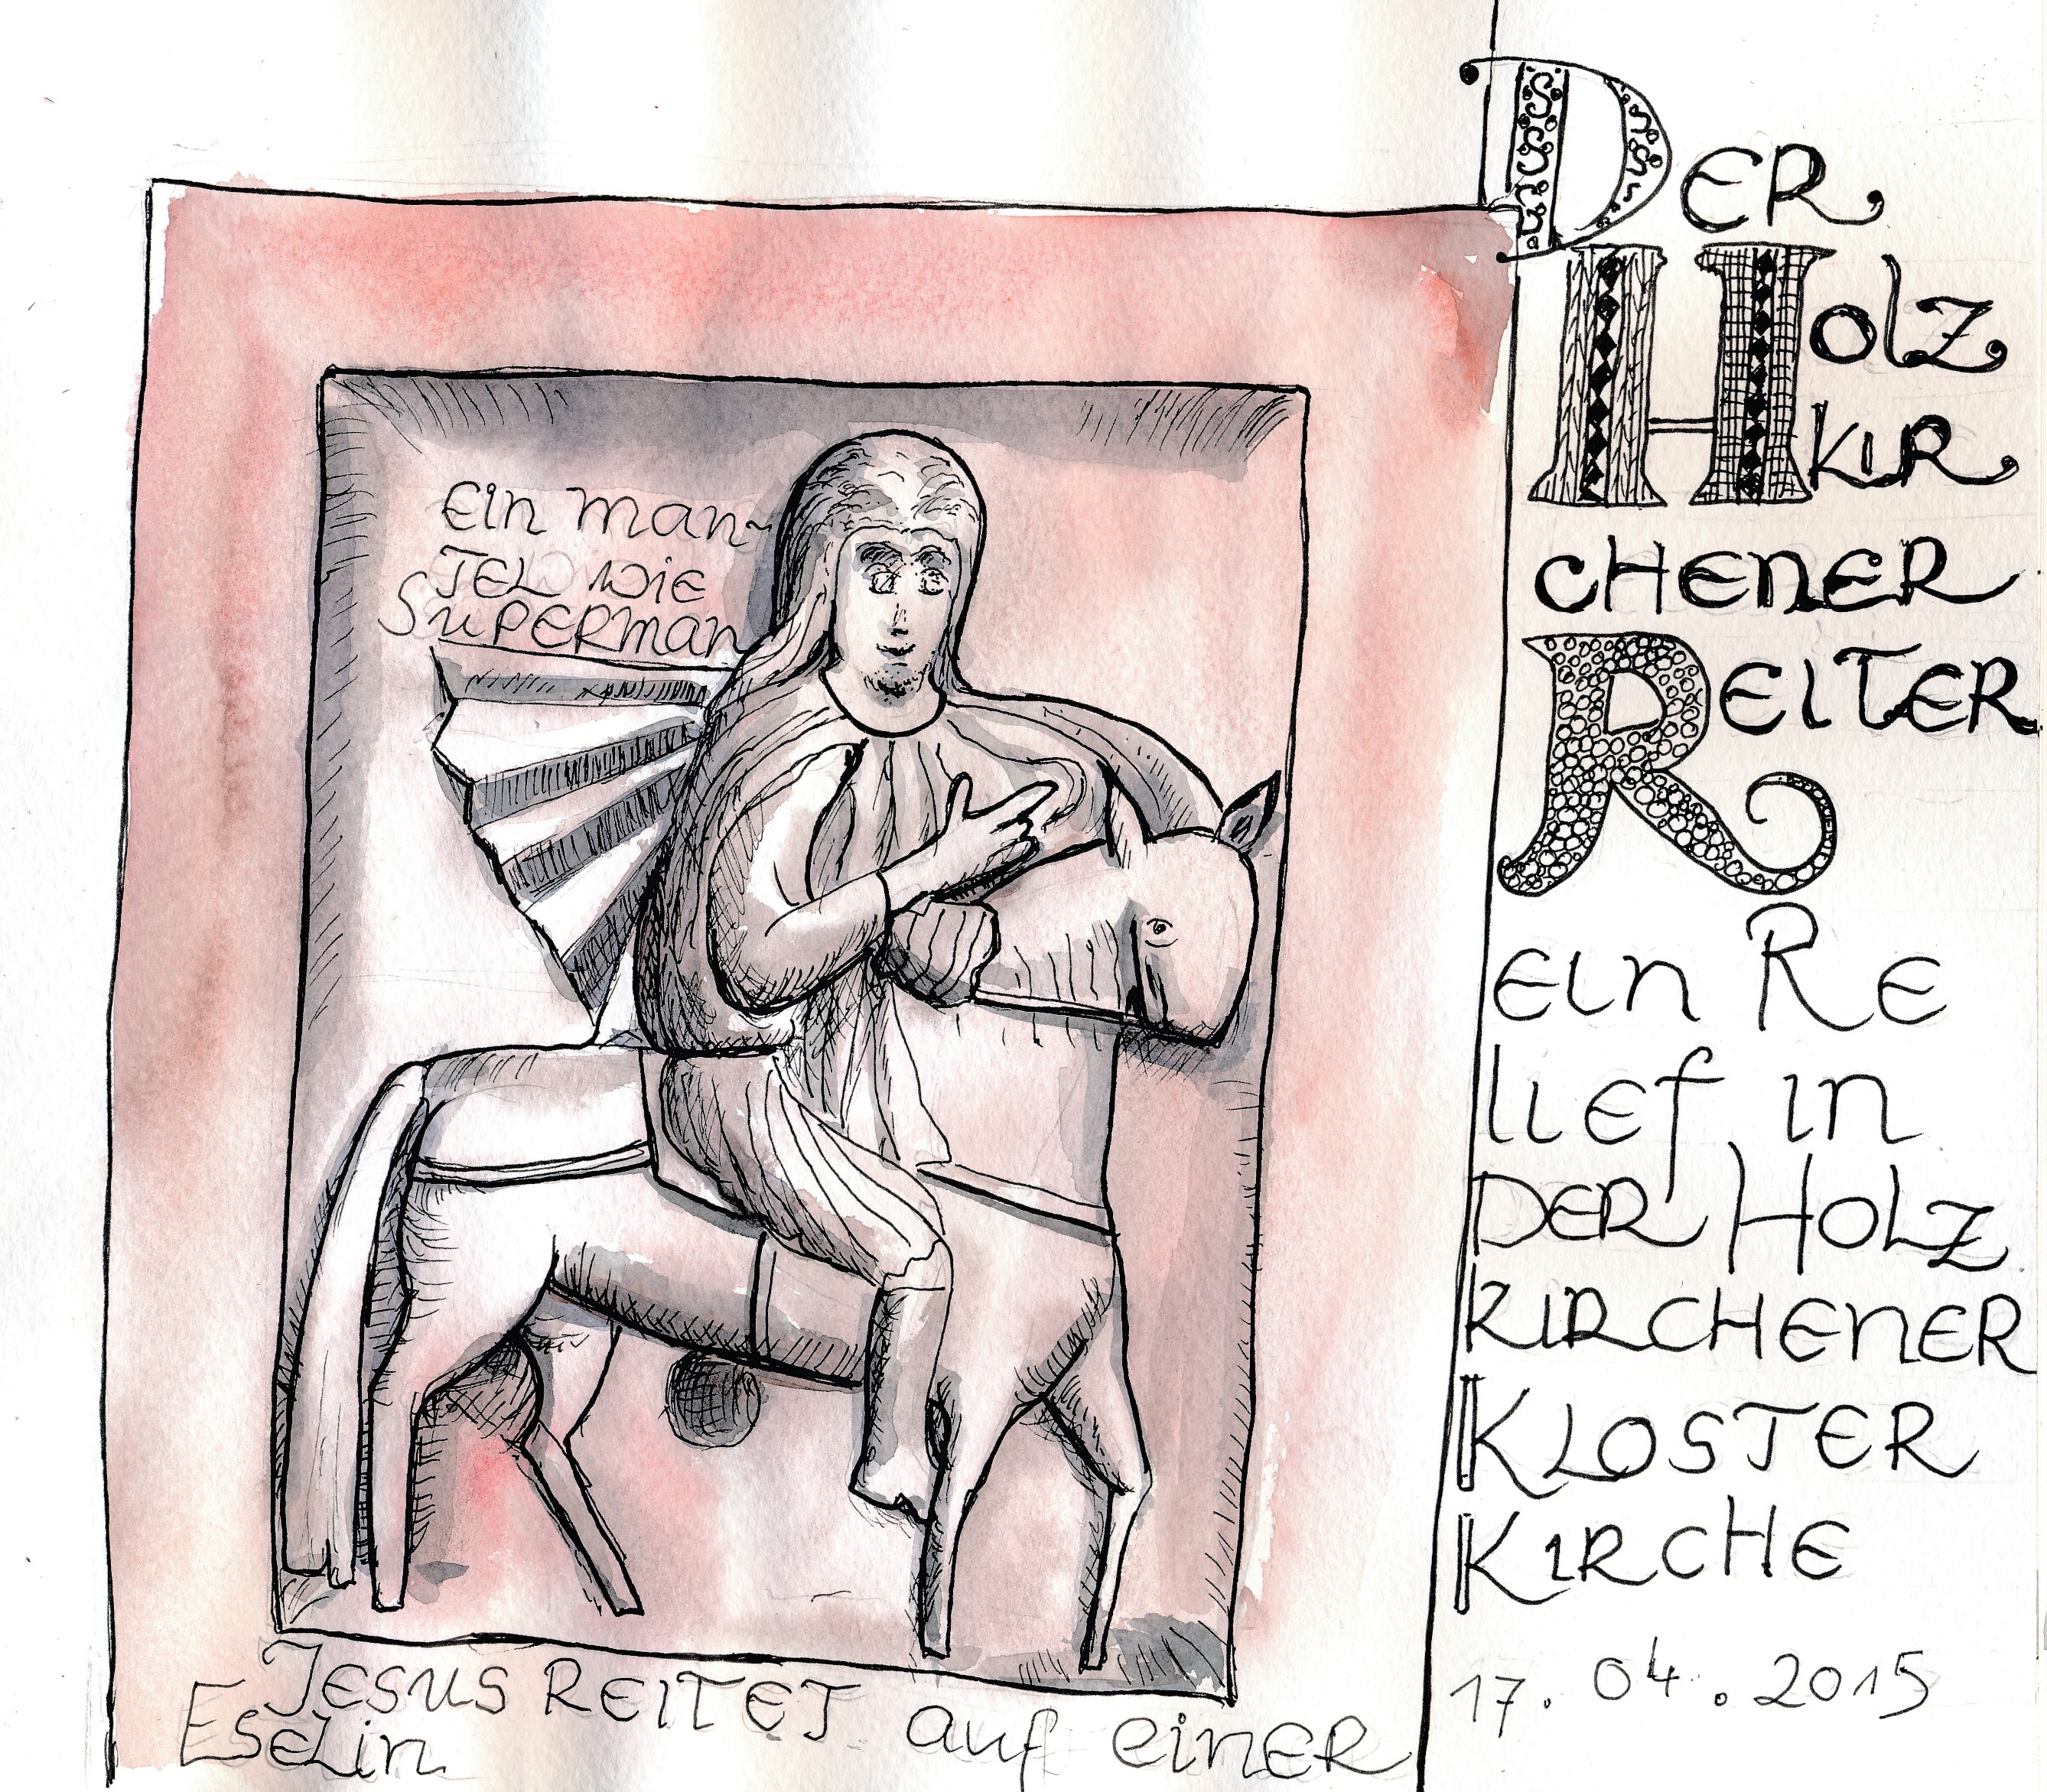 Ein Man-
TEL wie
SUPERman
JESUS REITET auf einer
Eselin
DER
Holz
KIR
CHENER
REITER
ein RE
lief in
DER HOLZ
KIRCHENER
KLOSTER
KIRCHE
17.04.2015